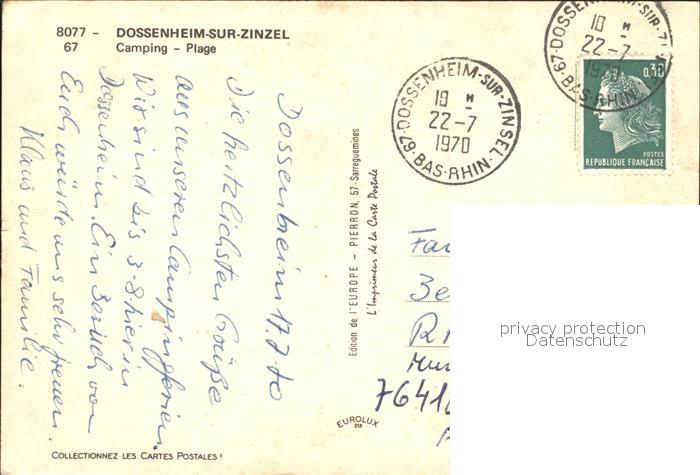 8077 - DOSSENHEIM-SUR-ZINZEL
67 Camping - Plage
DOSSENHEIM-SUR-ZINZEL
18 H
22-7
1970
67-BAS-RHIN
67-DOSSENHEIM-SUR-ZI
18 H
22-7
1970
BAS-RHIN
0,30
POSTES
REPUBLIQUE FRANÇAISE
Dossenheim 17.7.70
Die herzlichsten Grüße
aus unseren Campingferien.
Wir sind bis 3.8 hier in
Dossenheim. Ein Besuch von
Euch würde uns sehr freuen.
Klaus und Familie.
Edition de l'EUROPE - PIERRON, 57-Sarreguemines
L'Imprimeur de la Carte Postale
Fa
Ze
R
7641
privacy protection
Datenschutz
EUROLUX
COLLECTIONNEZ LES CARTES POSTALES !